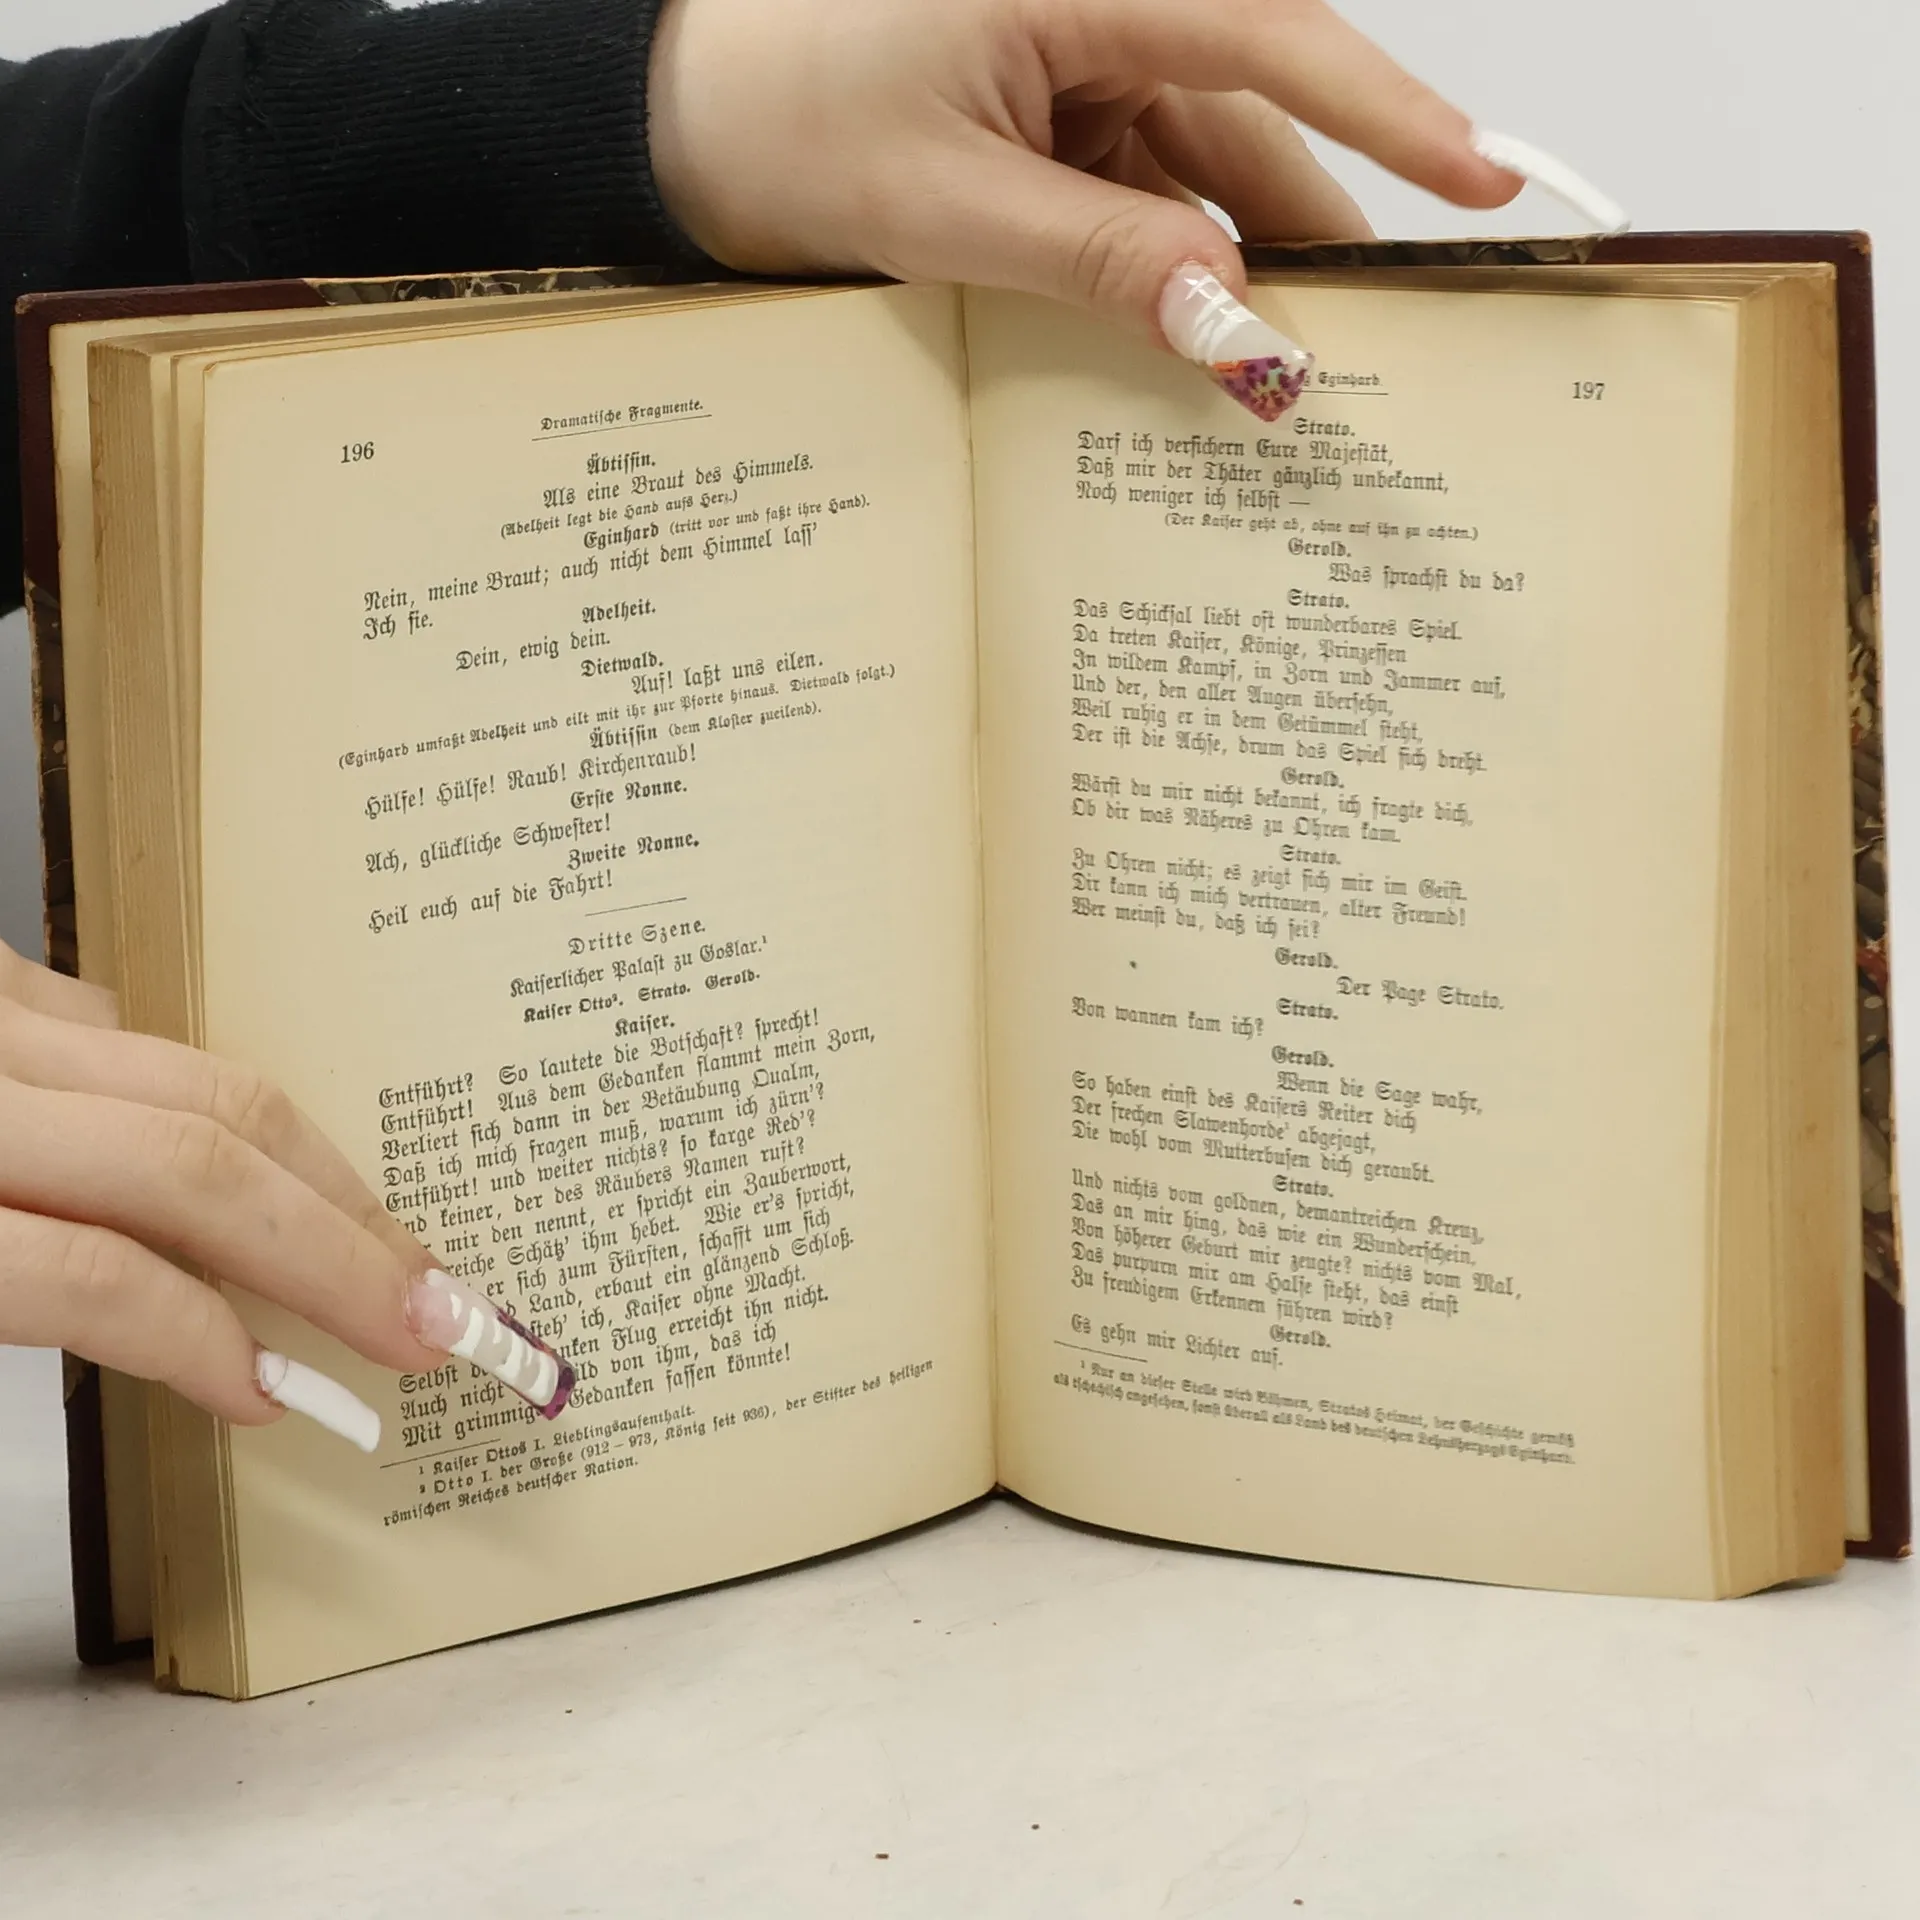 196
Dramatiſche Fragmente.
Äbtiſſin.
Als eine Braut des Himmels.
(Adelheit legt die Hand aufs Herz.)
Eginhard (tritt vor und faßt ihre Hand).
Nein, meine Braut; auch nicht dem Himmel laſſ'
Ich ſie.
Adelheit.
Dein, ewig dein.
Dietwald.
Auf! laßt uns eilen.
(Eginhard umfaßt Adelheit und eilt mit ihr zur Pforte hinaus. Dietwald folgt.)
Äbtiſſin (dem Kloſter zueilend).
Hülfe! Hülfe! Raub! Kirchenraub!
Erſte Nonne.
Ach, glückliche Schweſter!
Zweite Nonne.
Heil euch auf die Fahrt!
Dritte Szene.
Kaiſerlicher Palaſt zu Goslar.¹
Kaiſer Otto². Strato. Gerold.
Kaiſer.
Entführt? So lautete die Botſchaft? ſprecht!
Entführt! Aus dem Gedanken flammt mein Zorn,
Verliert ſich dann in der Betäubung Qualm,
Daß ich mich fragen muß, warum ich zürn'?
Entführt! und weiter nichts? ſo karge Red'?
keiner, der des Räubers Namen ruft?
mir den nennt, er ſpricht ein Zauberwort,
reiche Schätz' ihm hebet. Wie er's ſpricht,
er ſich zum Fürſten, ſchafft um ſich
Land, erbaut ein glänzend Schloß.
ſteh' ich, Kaiſer ohne Macht.
Flug erreicht ihn nicht.
Selbſt von ihm, das ich
Auch nicht Gedanken faſſen könnte!
Mit
¹ Kaiſer Ottos I. Lieblingsaufenthalt.
² Otto I. der Große (912–973, König ſeit 936), der Stifter des heiligen
römiſchen Reiches deutſcher Nation.
Eginhard.
197
Strato.
Darf ich verſichern Eure Majeſtät,
Daß mir der Thäter gänzlich unbekannt,
Noch weniger ich ſelbſt —
(Der Kaiſer geht ab, ohne auf ihn zu achten.)
Gerold.
Was ſprachſt du da?
Strato.
Das Schickſal liebt oft wunderbares Spiel.
Da treten Kaiſer, Könige, Prinzeſſen
In wildem Kampf, in Zorn und Jammer auf,
Und der, den aller Augen überſehn,
Weil ruhig er in dem Getümmel ſteht,
Der iſt die Achſe, drum das Spiel ſich dreht.
Gerold.
Wärſt du mir nicht bekannt, ich fragte dich,
Ob dir was Näheres zu Ohren kam.
Strato.
Zu Ohren nicht; es zeigt ſich mir im Geiſt.
Dir kann ich mich vertrauen, alter Freund!
Wer meinſt du, daß ich ſei?
Gerold.
Der Page Strato.
Strato.
Von wannen kam ich?
Gerold.
Wenn die Sage wahr,
So haben einſt des Kaiſers Reiter dich
Der frechen Slawenhorde¹ abgejagt,
Die wohl vom Mutterbuſen dich geraubt.
Strato.
Und nichts vom goldnen, demantreichen Kreuz,
Das an mir hing, das wie ein Wunderſchein,
Von höherer Geburt mir zeugte? nichts vom Mal,
Das purpurn mir am Halſe ſteht, das einſt
Zu freudigem Erkennen führen wird?
Gerold.
Es gehn mir Lichter auf.
¹ Nur an dieſer Stelle wird Böhmen, Stratos Heimat, der Geſchichte gemäß
als tſchechiſch angeſehen, ſonſt überall als Land des deutſchen Lehnsherzogs Eginhard.